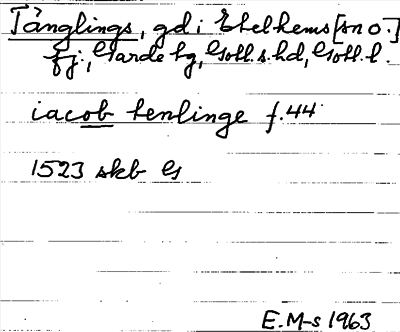 Tänglings, gd i Etelhems [sn o.]
fj., Garde tg, Gotl. s. hd, Gotl. l.
iacob tenlinge f. 44
1523 skb G
E.M-s 1963